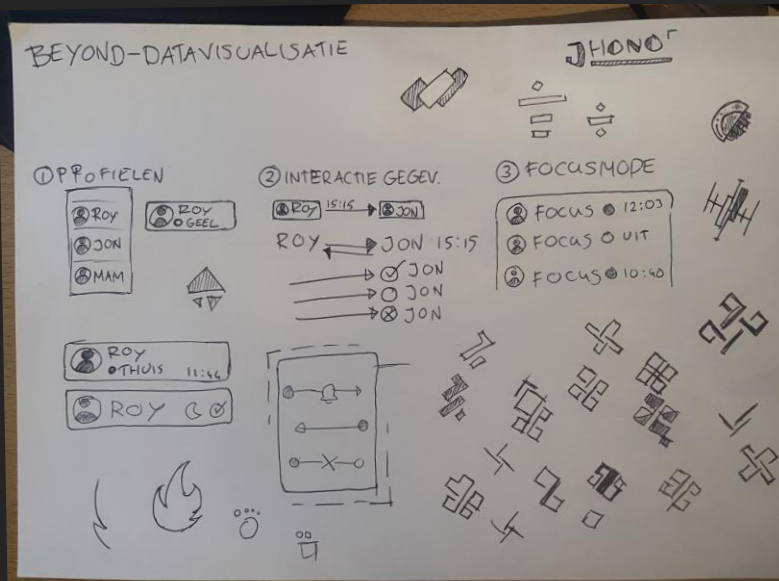 BEYOND-DATAVISUALISATIE
JHONO
① PROFIELEN
ROY
JON
MAM
ROY
GEEL
ROY
THUIS 11:44
ROY
② INTERACTIE GEGEV.
ROY 15:15 JON
ROY JON 15:15
JON
JON
JON
③ FOCUSMODE
FOCUS 12:03
FOCUS UIT
FOCUS 10:40